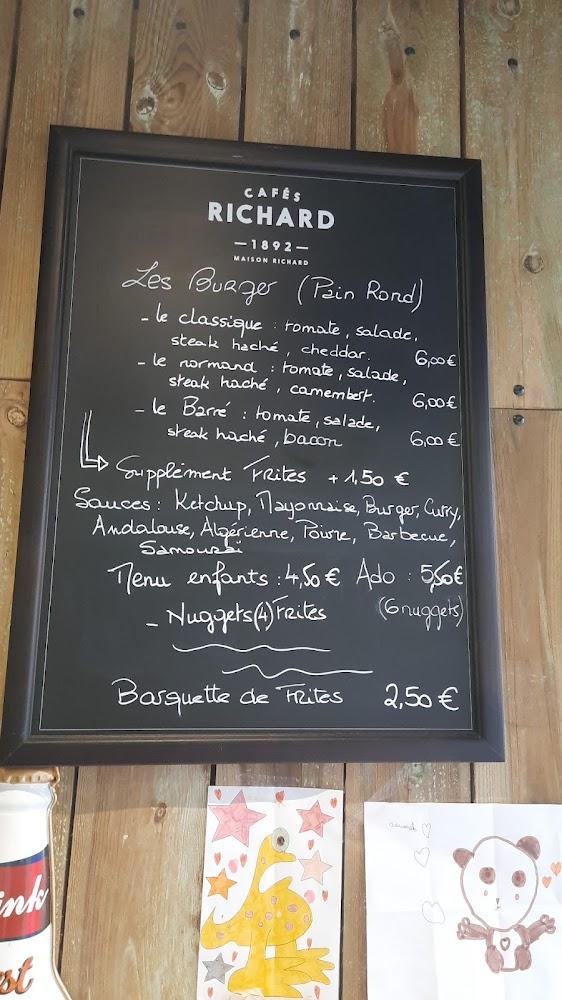 CAFÉS
RICHARD
— 1892 —
MAISON RICHARD
Les Burger (Pain Rond)
- le classique : tomate, salade,
steak haché, cheddar. 6,00€
- le normand : tomate, salade,
steak haché, camembert. 6,00€
- le Barré : tomate, salade,
steak haché, bacon 6,00€
Supplément Frites + 1,50 €
Sauces : Ketchup, Mayonnaise, Burger, Curry,
Andalouse, Algérienne, Poivre, Barbecue,
Samouraï
Menu enfants : 4,50€ Ado : 5,50€
- Nuggets(4) Frites (6 nuggets)
Barquette de Frites 2,50 €
ink
st